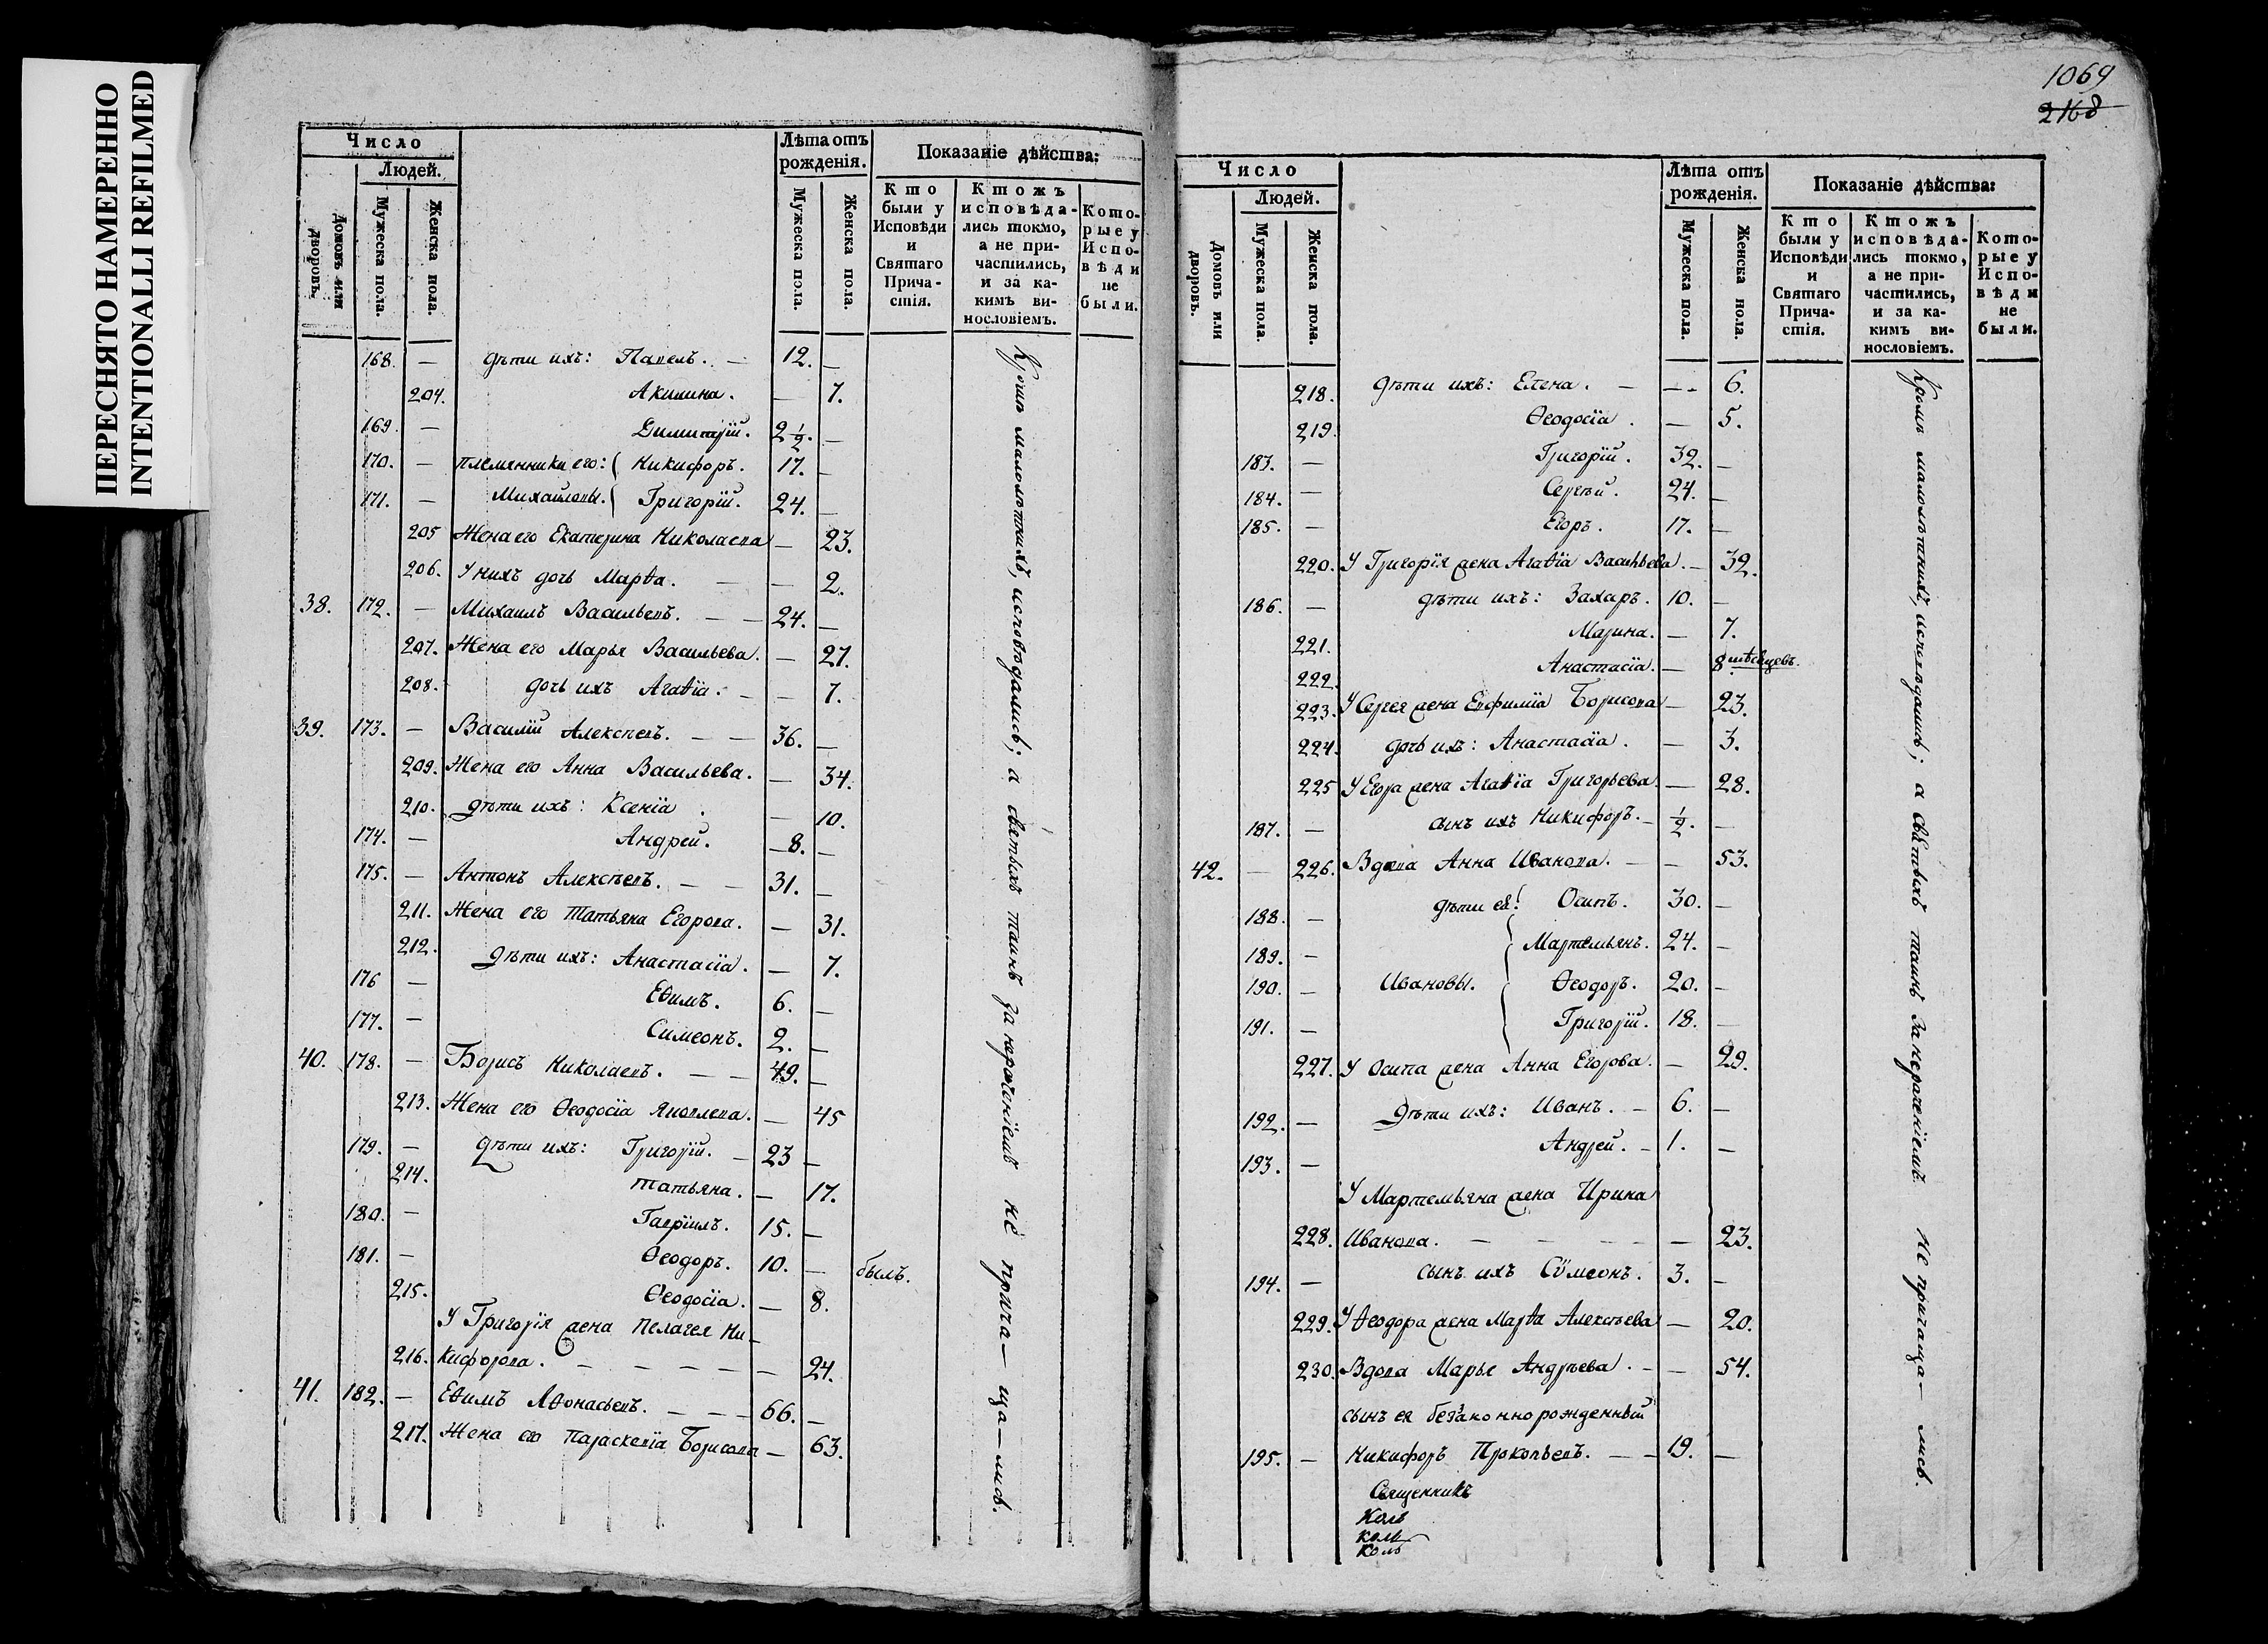 ПЕРЕСНЯТО НАМЕРЕННО
INTENTIONALLI REFILMED
Число
Людей.
Домовъ или дворовъ.
Мужеска пола.
Женска пола.
Лѣта отъ рожденія.
Мужеска пола.
Женска пола.
Показаніе дѣйства:
Кто были у Исповѣди и Святаго Прича-стія.
Ктожъ исповѣда-лись токмо, а не при-частились, и за ка-кимъ ви-нословіемъ.
Кото-рые у Испо-вѣди не были.
168. — дѣти ихъ: Павелъ. — 12. —
204. Акилина. — 7.
169. — Димитрій. 2 1/2. —
170. — племянники его: Никифоръ. 17. —
171. — Михайловы. Григорій. 24. —
205 Жена его Екатерина Николаева — 23.
206. У нихъ дочь Марѳа. — — 2.
38. 172. — Михаилъ Васильевъ. — — 24. —
207. Жена его Марья Васильева. — 27.
208. дочь ихъ Агаѳія. — — 7.
39. 173. — Василій Алексѣевъ. — — 36. —
209. Жена его Анна Васильева. — 34.
210. дѣти ихъ: Ксенія . — 10.
174. — Андрей. — 8. —
175. — Антонъ Алексѣевъ. — — 31. —
211. Жена его Татьяна Егорова. — 31.
212. дѣти ихъ: Анастасіа. — 7.
176 — Еѳимъ. 6. —
177. — Симеонъ. 2. —
40. 178. — Борисъ Николаевъ. — — 49. —
213. Жена его Ѳеодосіа Яковлева. — 45
179. — дѣти ихъ: Григорій. — 23 —
214. Татьяна. — 17.
180. — Гавріилъ. 15. —
181. — Ѳеодоръ. 10. — былъ.
215. Ѳеодосіа. — 8.
У Григорія жена Пелагея Ни-
216. кифорова. — — — — — 24.
41. 182. — Еѳимъ Аѳонасьевъ. — — — 66. —
217. Жена его Параскевіа Борисова — 63.
Кромѣ малолѣтнихъ, исповѣдались; а святыхъ таинъ за нераченіемъ не прича — ща — лись.
1069
2168
Число
Людей.
Домовъ или дворовъ.
Мужеска пола.
Женска пола.
Лѣта отъ рожденія.
Мужеска пола.
Женска пола.
Показаніе дѣйства:
Кто были у Исповѣди и Святаго Прича-стія.
Ктожъ исповѣда-лись токмо, а не при-частились, и за ка-кимъ ви-нословіемъ.
Кото-рые у Испо-вѣди не были.
218. дѣти ихъ: Елена. — — 6.
219. Ѳеодосіа . — 5.
183. — Григорій. 32. —
184. — Сергѣй. 24. —
185. — Егоръ. 17. —
220. У Григорія жена Агаѳіа Васильева. — 32.
186. — дѣти ихъ: Захаръ. 10. —
221. Марина. — 7.
222. Анастасіа. — 8 мѣсяцевъ.
223. У Сергея жена Евфиміа Борисова — 23.
224. дочь ихъ: Анастасіа. — 3.
225 У Егора жена Агаѳіа Григорьева. — 28.
187. — сынъ ихъ Никифоръ. — 1/2. —
42. — 226. Вдова Анна Иванова. — — 53.
188. — дѣти ея: Осипъ. 30. —
189. — Мартемьянъ. 24. —
190. — Ивановы. Ѳеодоръ. 20. —
191. — Григорій. 18. —
227. У Осипа жена Анна Егорова. — 29.
192. — дѣти ихъ: Иванъ. — 6. —
193. — Андрей. — 1. —
У Мартемьяна жена Ирина
228. Иванова. — — — — — 23.
194. — сынъ ихъ Сѵмеонъ. 3. —
229. У Ѳеодора жена Марѳа Алексѣева — 20.
230. Вдова Марья Андрѣева. — — 54.
сынъ ея беззаконнорожденный
195. — Никифоръ Прокопьевъ. — — 19. —
Священникъ
Кромѣ малолѣтнихъ, исповѣдались; а святыхъ таинъ за нераченіемъ не прича ща — лись.